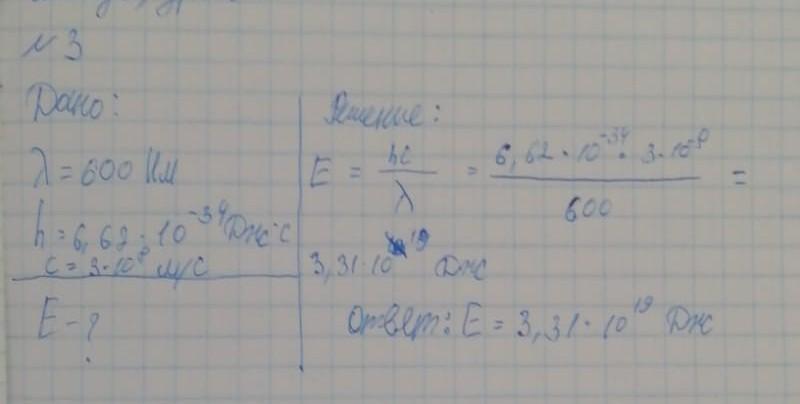 №3
Дано:
λ = 600 нм
h = 6,62 · 10⁻³⁴ Дж·с
c = 3·10⁸ м/с
E - ?
Решение:
E = hc/λ = 6,62 · 10⁻³⁴ · 3·10⁻⁸ / 600 =
3,31·10¹⁹ Дж
Ответ: E = 3,31 · 10¹⁹ Дж